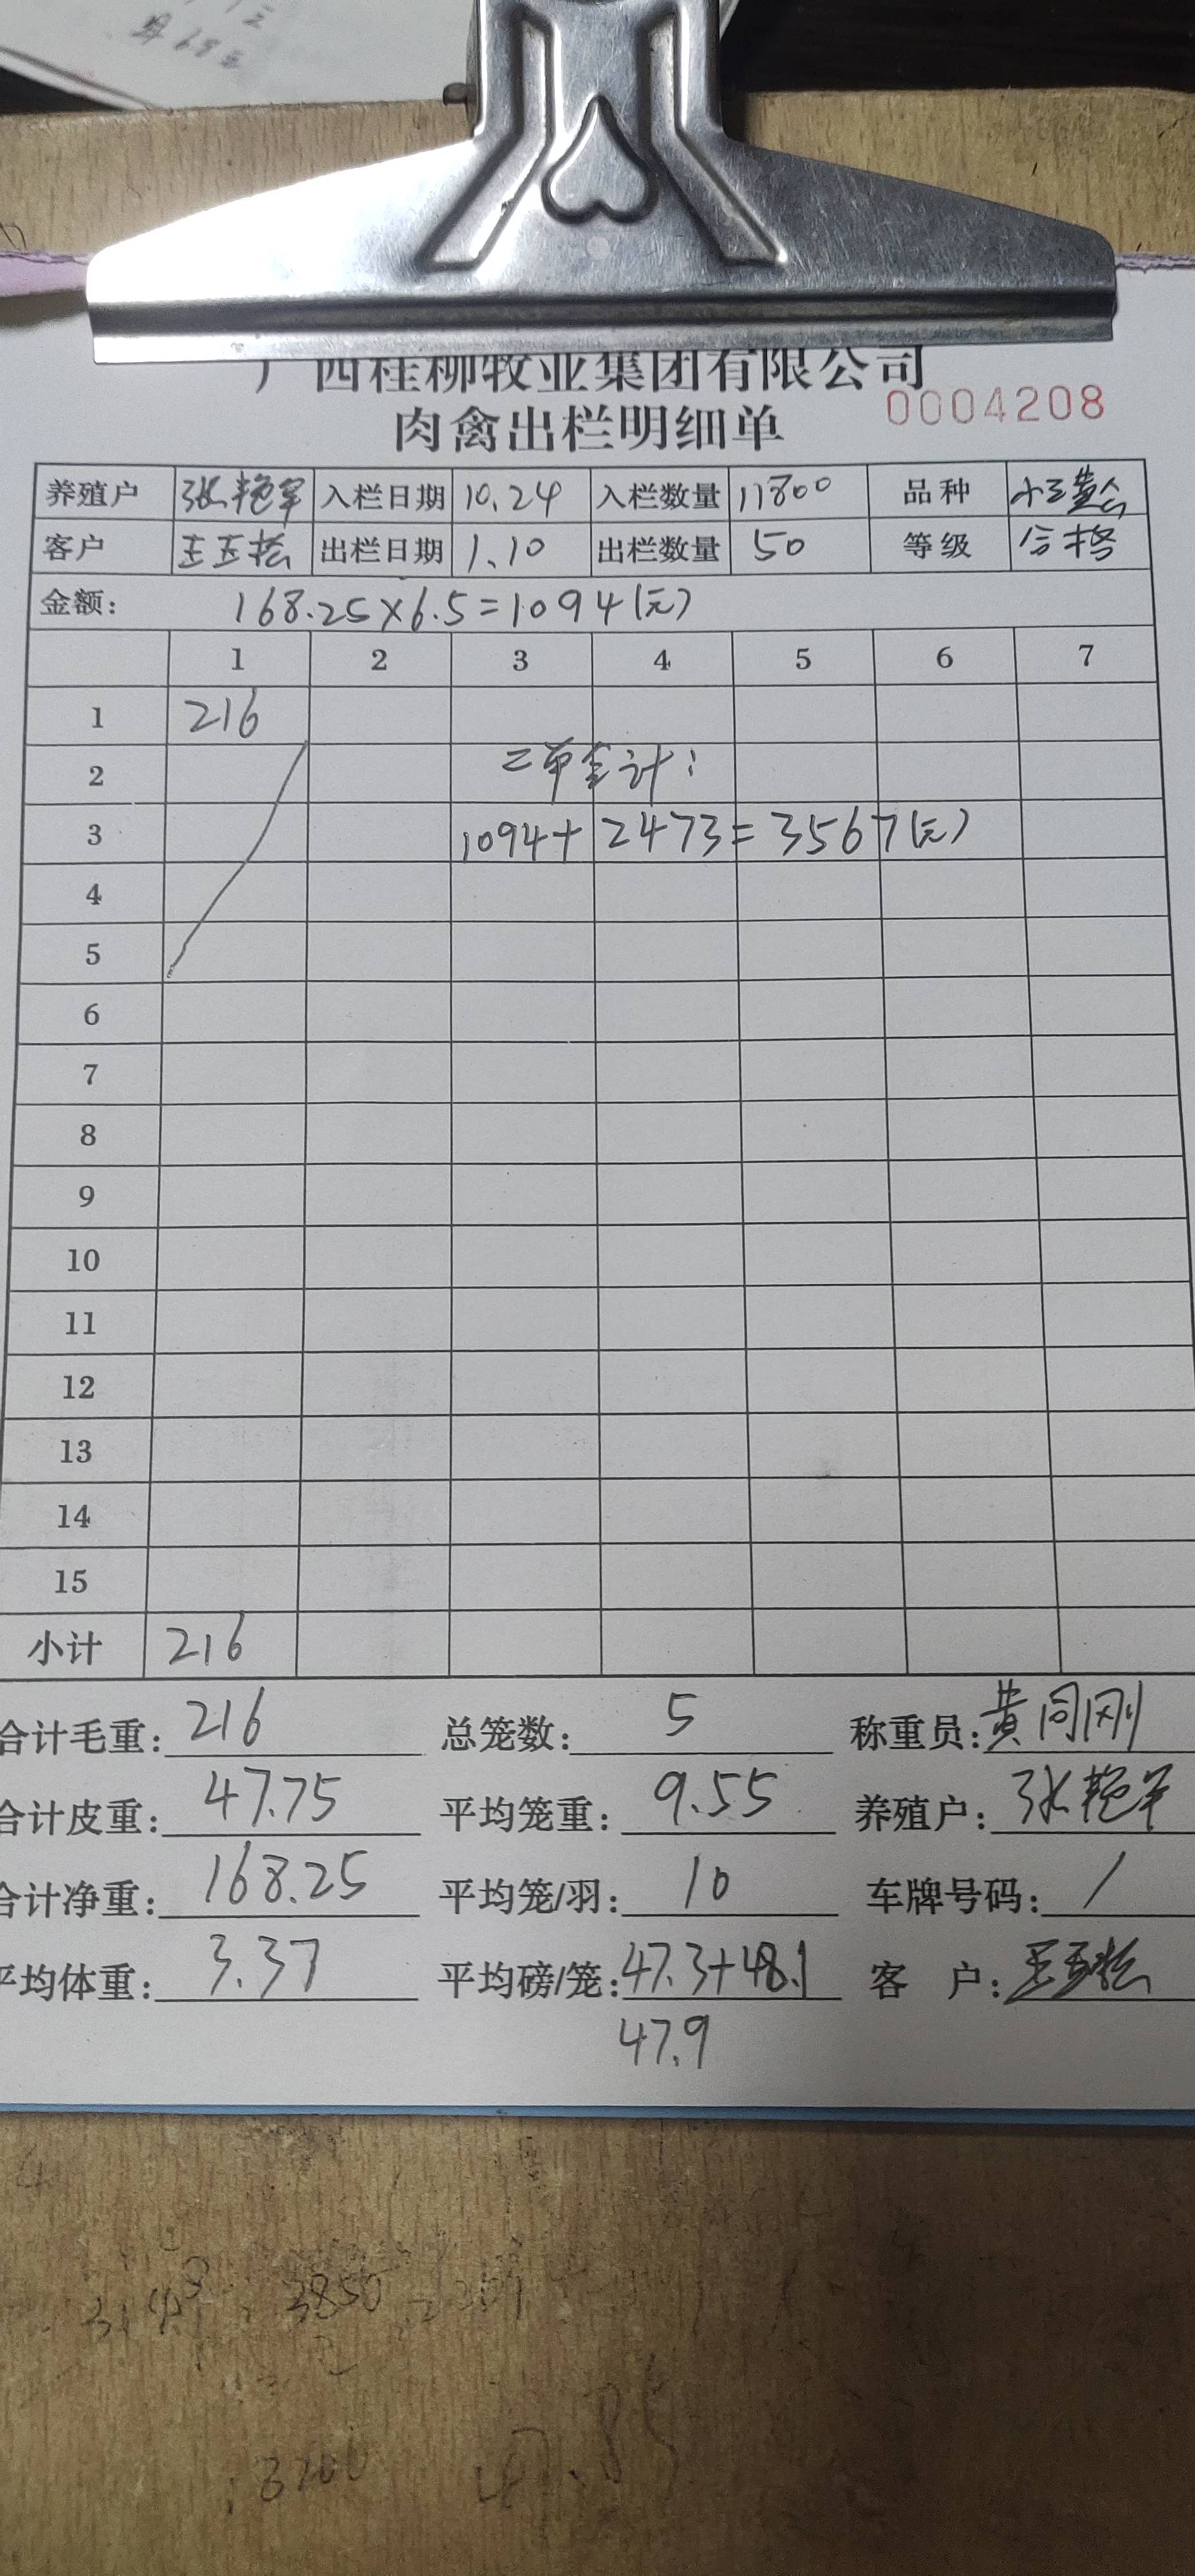 广西桂柳牧业集团有限公司
肉禽出栏明细单 0004208
养殖户 张艳军 入栏日期 10.24 入栏数量 11800 品种
客户 王玉松 出栏日期 1.10 出栏数量 50 等级 合格
金额: 168.25×6.5=1094(元)
1 2 3 4 5 6 7
1 216
2 二单合计:
3 1094+2473=3567(元)
4
5
6
7
8
9
10
11
12
13
14
15
小计 216
合计毛重: 216 总笼数: 5 称重员: 黄同刚
合计皮重: 47.75 平均笼重: 9.55 养殖户: 张艳军
合计净重: 168.25 平均笼/羽: 10 车牌号码: /
平均体重: 3.37 平均磅/笼: 47.3+48.1 客户: 王玉松
47.9